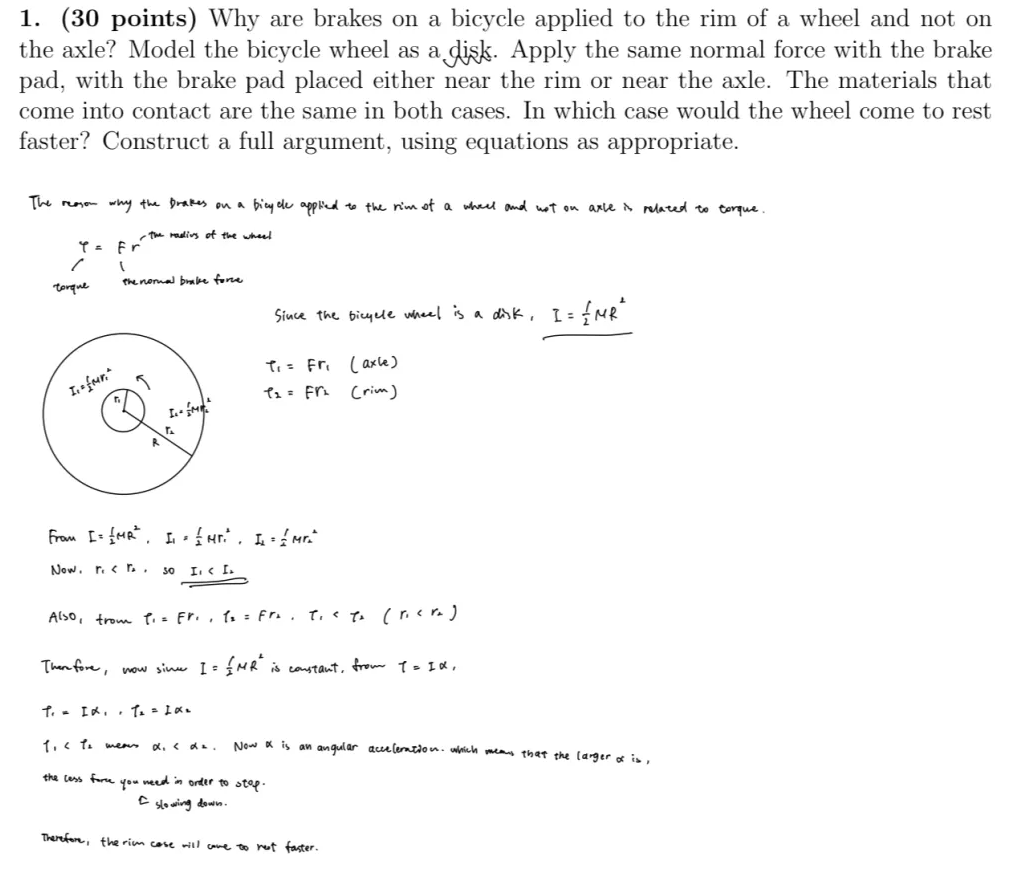 1. (30 points) Why are brakes on a bicycle applied to the rim of a wheel and not on
the axle? Model the bicycle wheel as a disk. Apply the same normal force with the brake
pad, with the brake pad placed either near the rim or near the axle. The materials that
come into contact are the same in both cases. In which case would the wheel come to rest
faster? Construct a full argument, using equations as appropriate.
The reason why the brakes on a bicycle applied to the rim of a wheel and not on axle is related to torque.
the radius of the wheel
τ = Fr
torque
the normal brake force
Since the bicycle wheel is a disk, I = 1/2 MR²
τ₁ = Fr₁ (axle)
τ₂ = Fr₂ (rim)
I₁ = 1/2 Mr₁²
r₁
I₂ = 1/2 Mr₂²
r₂
R
From I = 1/2 MR², I₁ = 1/2 Mr₁², I₂ = 1/2 Mr₂²
Now, r₁ < r₂, so I₁ < I₂
Also, from τ₁ = Fr₁, τ₂ = Fr₂, τ₁ < τ₂ (r₁ < r₂)
Therefore, now since I = 1/2 MR² is constant, from τ = Iα,
τ₁ = Iα₁, τ₂ = Iα₂
τ₁ < τ₂ means α₁ < α₂. Now α is an angular acceleration. which means that the larger α is,
the less force you need in order to stop.
slowing down.
Therefore, the rim case will come to rest faster.